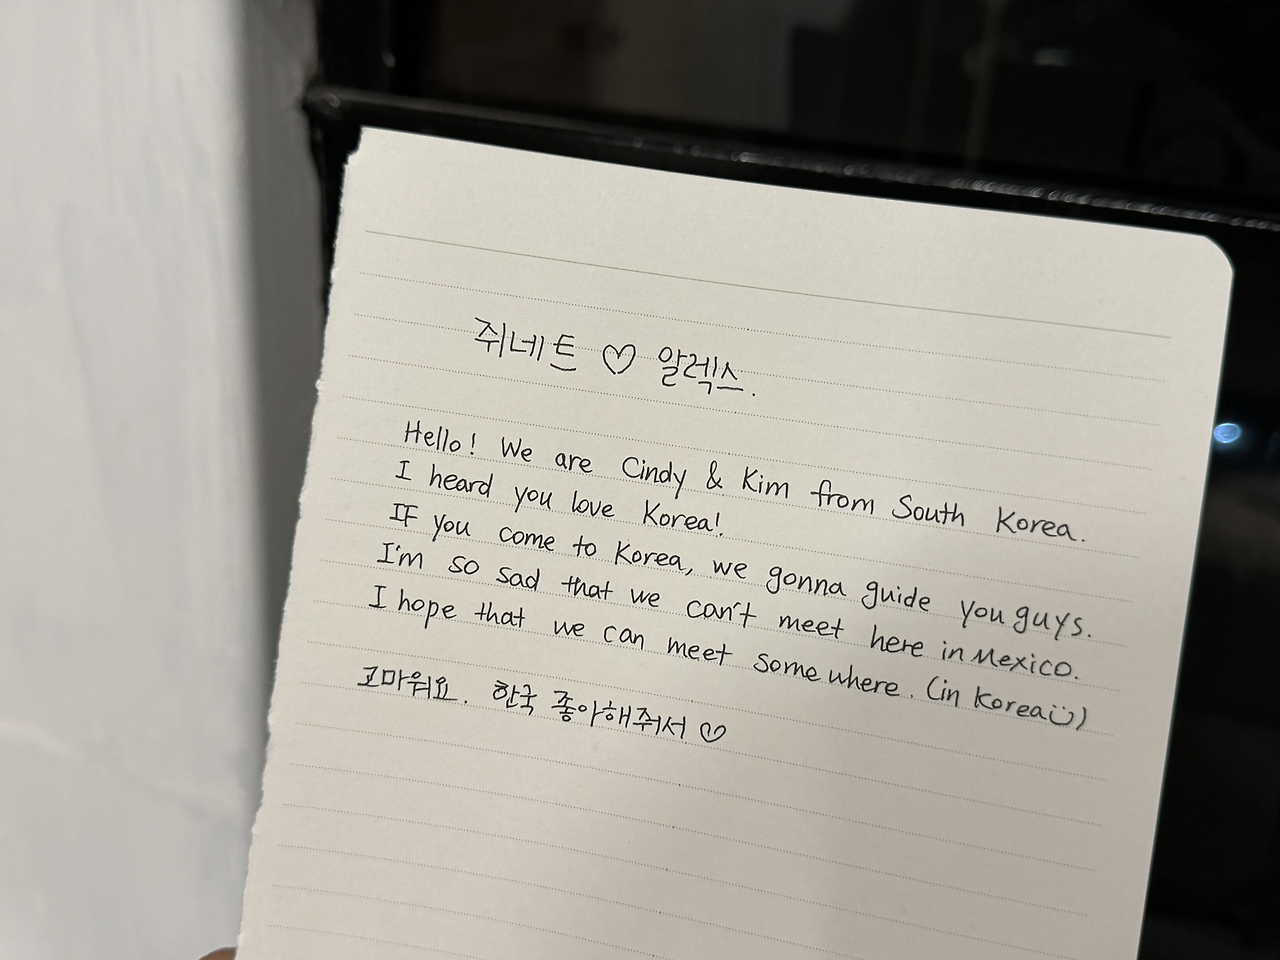 쥐네트 ♡ 알렉스.
Hello! We are Cindy & Kim from South Korea.
I heard you love Korea!
IF you come to Korea, we gonna guide you guys.
I'm so sad that we can't meet here in Mexico.
I hope that we can meet somewhere. (in Korea☺)
고마워요. 한국 좋아해줘서 ♡